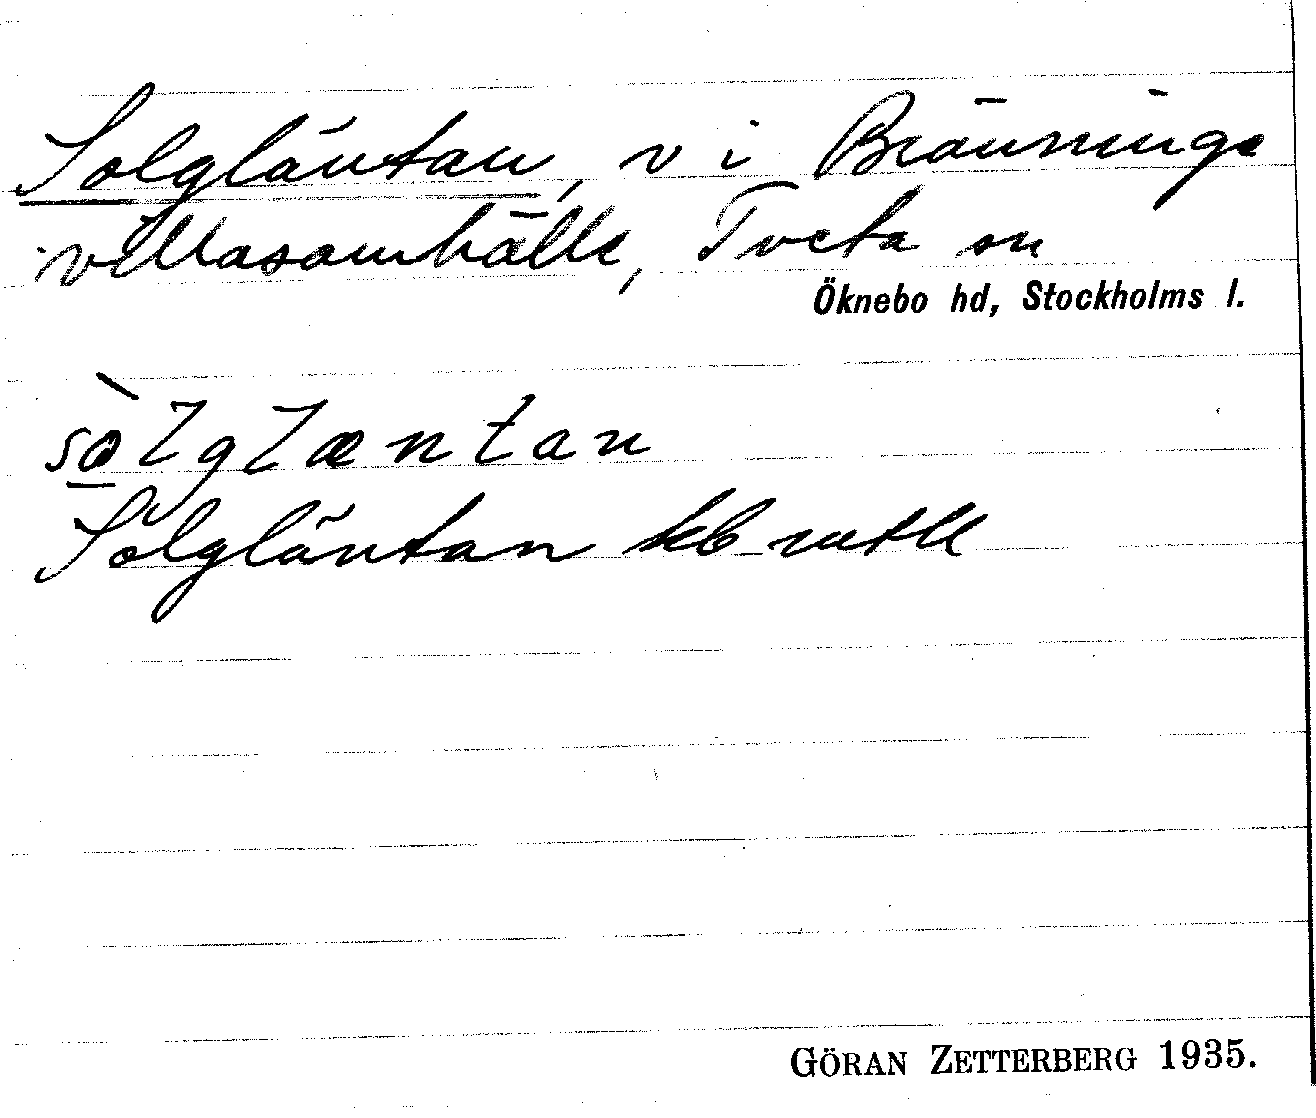 Solgläntan, v i Bränninge
villasamhälle, Tveta sn
Öknebo hd, Stockholms l.
sòlglæntan
Solgläntan kb
GÖRAN ZETTERBERG 1935.